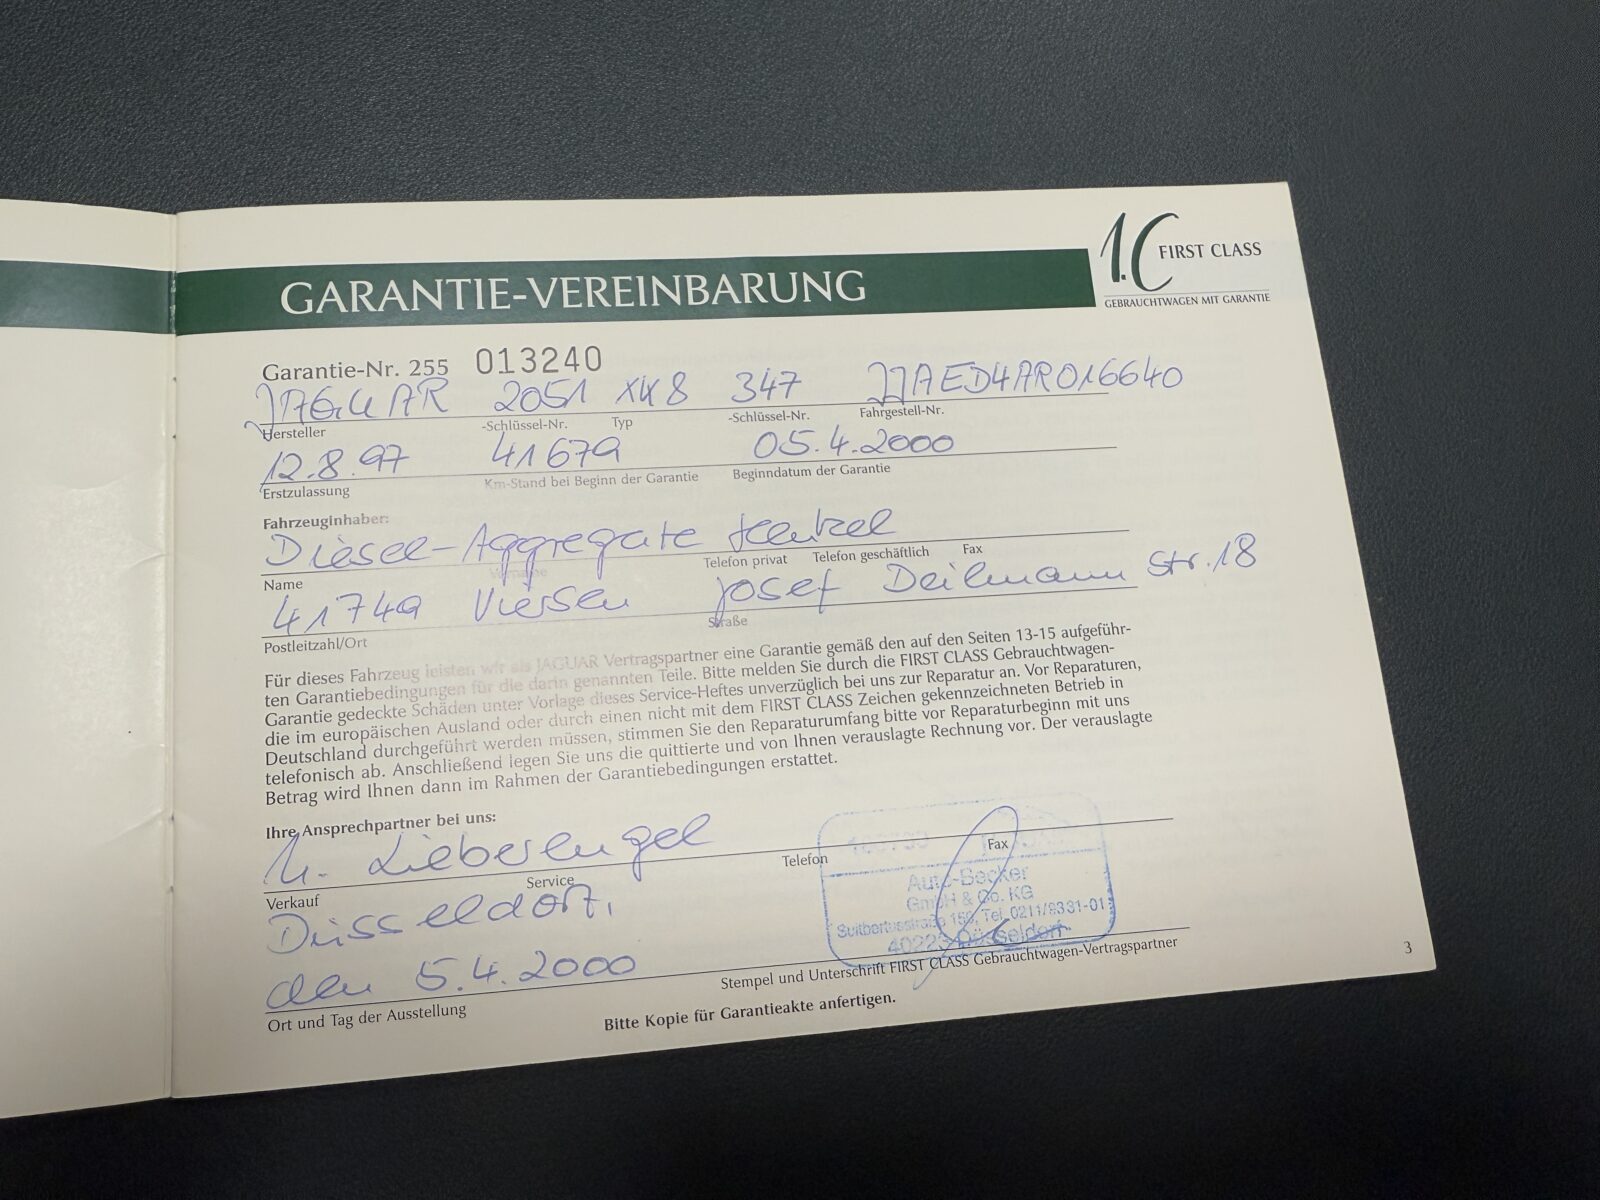 1.C FIRST CLASS
GEBRAUCHTWAGEN MIT GARANTIE
GARANTIE-VEREINBARUNG
Garantie-Nr. 255 013240
JAGUAR 2051 XK8 347 JJAED4AR016640
Hersteller -Schlüssel-Nr. Typ -Schlüssel-Nr. Fahrgestell-Nr.
12.8.97 41679 05.4.2000
Erstzulassung Km-Stand bei Beginn der Garantie Beginndatum der Garantie
Fahrzeuginhaber:
Diesel-Aggregate Henkel
Name Vorname Telefon privat Telefon geschäftlich Fax
41749 Viersen Josef Deilmann Str. 18
Postleitzahl/Ort Straße
Für dieses Fahrzeug leisten wir als JAGUAR Vertragspartner eine Garantie gemäß den auf den Seiten 13-15 aufgeführ-
ten Garantiebedingungen für die darin genannten Teile. Bitte melden Sie durch die FIRST CLASS Gebrauchtwagen-
Garantie gedeckte Schäden unter Vorlage dieses Service-Heftes unverzüglich bei uns zur Reparatur an. Vor Reparaturen,
die im europäischen Ausland oder durch einen nicht mit dem FIRST CLASS Zeichen gekennzeichneten Betrieb in
Deutschland durchgeführt werden müssen, stimmen Sie den Reparaturumfang bitte vor Reparaturbeginn mit uns
telefonisch ab. Anschließend legen Sie uns die quittierte und von Ihnen verauslagte Rechnung vor. Der verauslagte
Betrag wird Ihnen dann im Rahmen der Garantiebedingungen erstattet.
Ihre Ansprechpartner bei uns:
Lieberengel
Verkauf Service Telefon Fax
Auto-Becker
GmbH & Co. KG
Suitbertusstraße 150, Tel. 0211/9331-01
40223 Düsseldorf
Düsseldorf,
den 5.4.2000
Ort und Tag der Ausstellung Stempel und Unterschrift FIRST CLASS Gebrauchtwagen-Vertragspartner
Bitte Kopie für Garantieakte anfertigen.
3